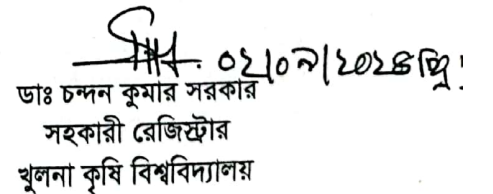 ০২/০৯/২০২৪খ্রি:
ডাঃ চন্দন কুমার সরকার
সহকারী রেজিস্ট্রার
খুলনা কৃষি বিশ্ববিদ্যালয়